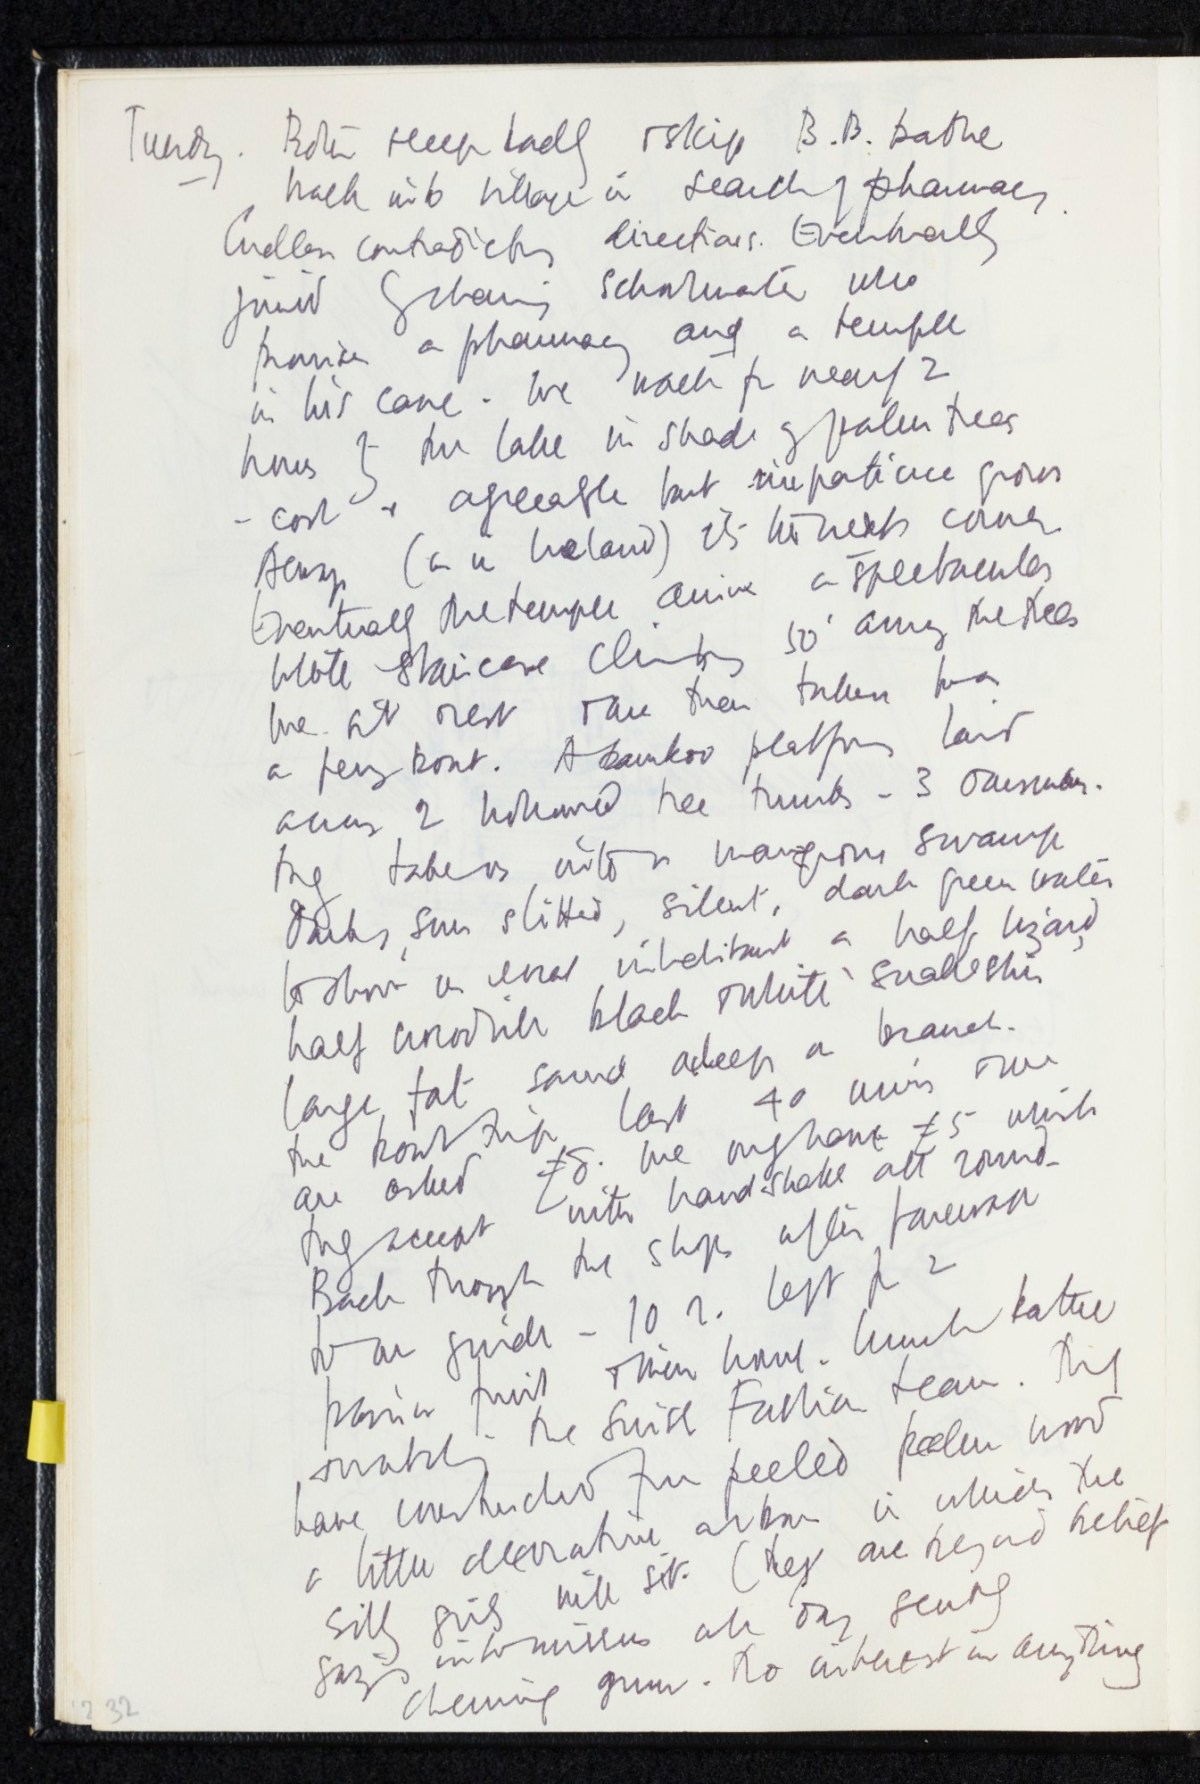 Tuesday. Both sleep badly & skip B.B. bathe
walk into village in search of pharmacy.
Endless contradictory directions. Eventually
joined by charming schoolmaster who
promises a pharmacy and a temple
in his care. We walk for nearly 2
hours by the lake in shade of palm trees
- cool & agreeable but impatience grows
Always (as in Ireland) its the next corner
Eventually the temple arrives a spectacular
white staircase climbing 50' among the trees
We sit rest & are then taken for a
a ferry boat. A bamboo platform laid
across 2 hollowed tree trunks - 3 oarsmen.
They take us into a mangrove swamp
Dark, sun slitted, silent, dark green water
to show us local inhabitant a half lizard,
half crocodile black & white snakeskin
large, fat sound asleep on branch.
the boat trip last 40 mins & we
are asked £8. We only have £5 which
they accept with handshake all round.
Back through the shops after farewell
to our guide - 10 r. left for 2
passion fruit & then home. Lunch bathe
watching the Swiss Fashion team. They
have constructed from peeled palm wood
a little decorative arbour in which the
silly girls will sit. (they are beyond belief
gazing into mirrors all day
chewing gum. No interest in anything
32